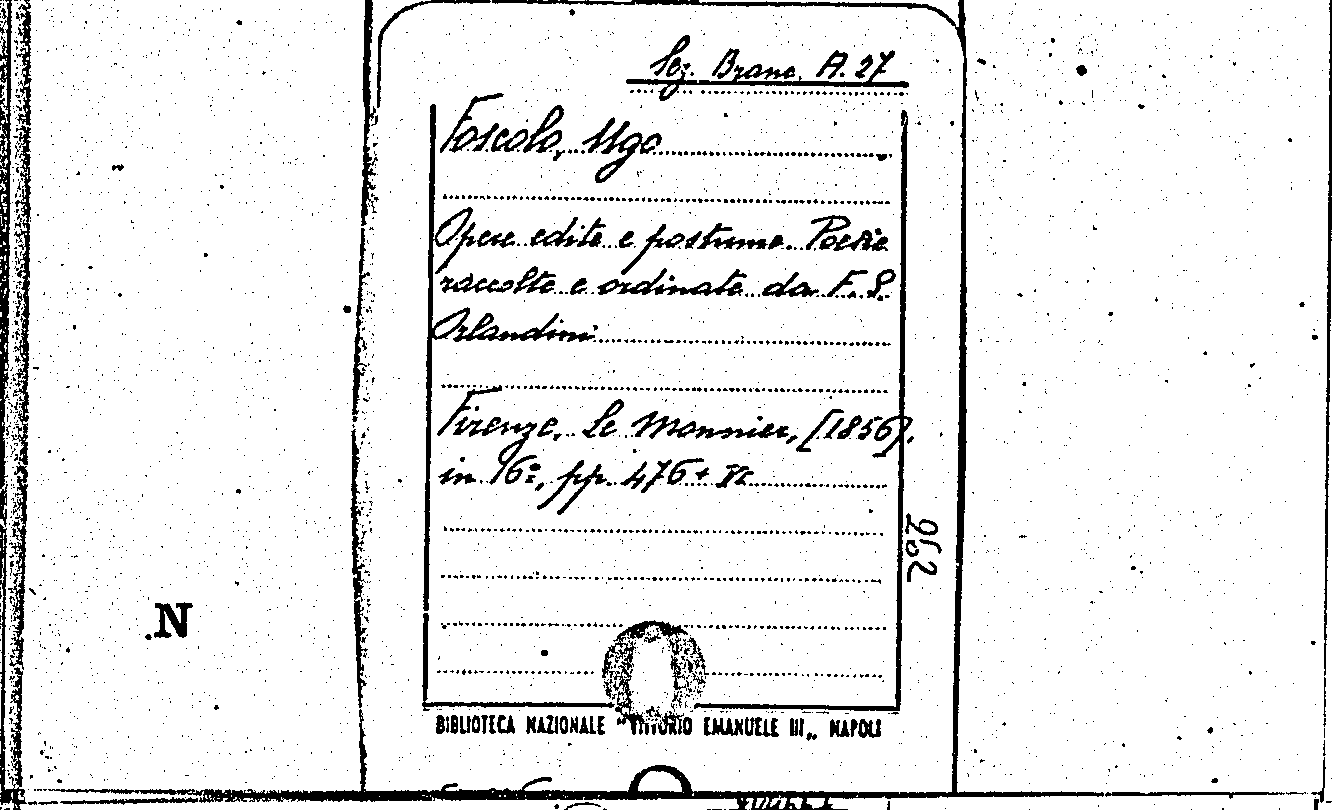 Sez. Branc. A. 27
Foscolo, Ugo
Opere edite e postume. Poesie
raccolte e ordinate da F. S.
Orlandini
Firenze, Le Monnier, [1856].
in 16º, pp. 476 +
962
N
BIBLIOTECA NAZIONALE "VITTORIO EMANUELE III„ NAPOLI